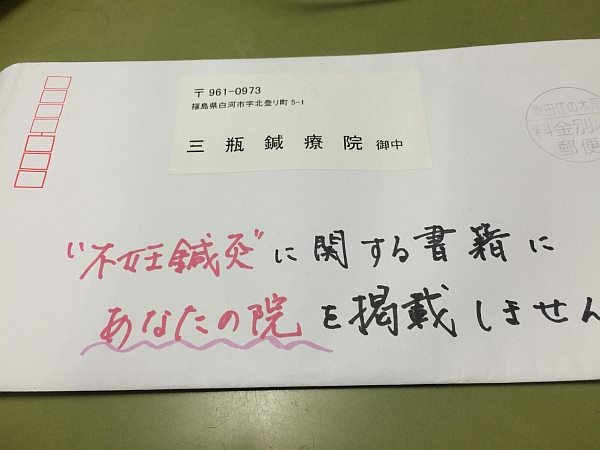 〒961-0973
福島県白河市字北登り町 5-1
三 瓶 鍼 療 院 御中
吹田江の木局
料金別
郵便
"不妊鍼灸"に関する書籍に
あなたの院を掲載しません